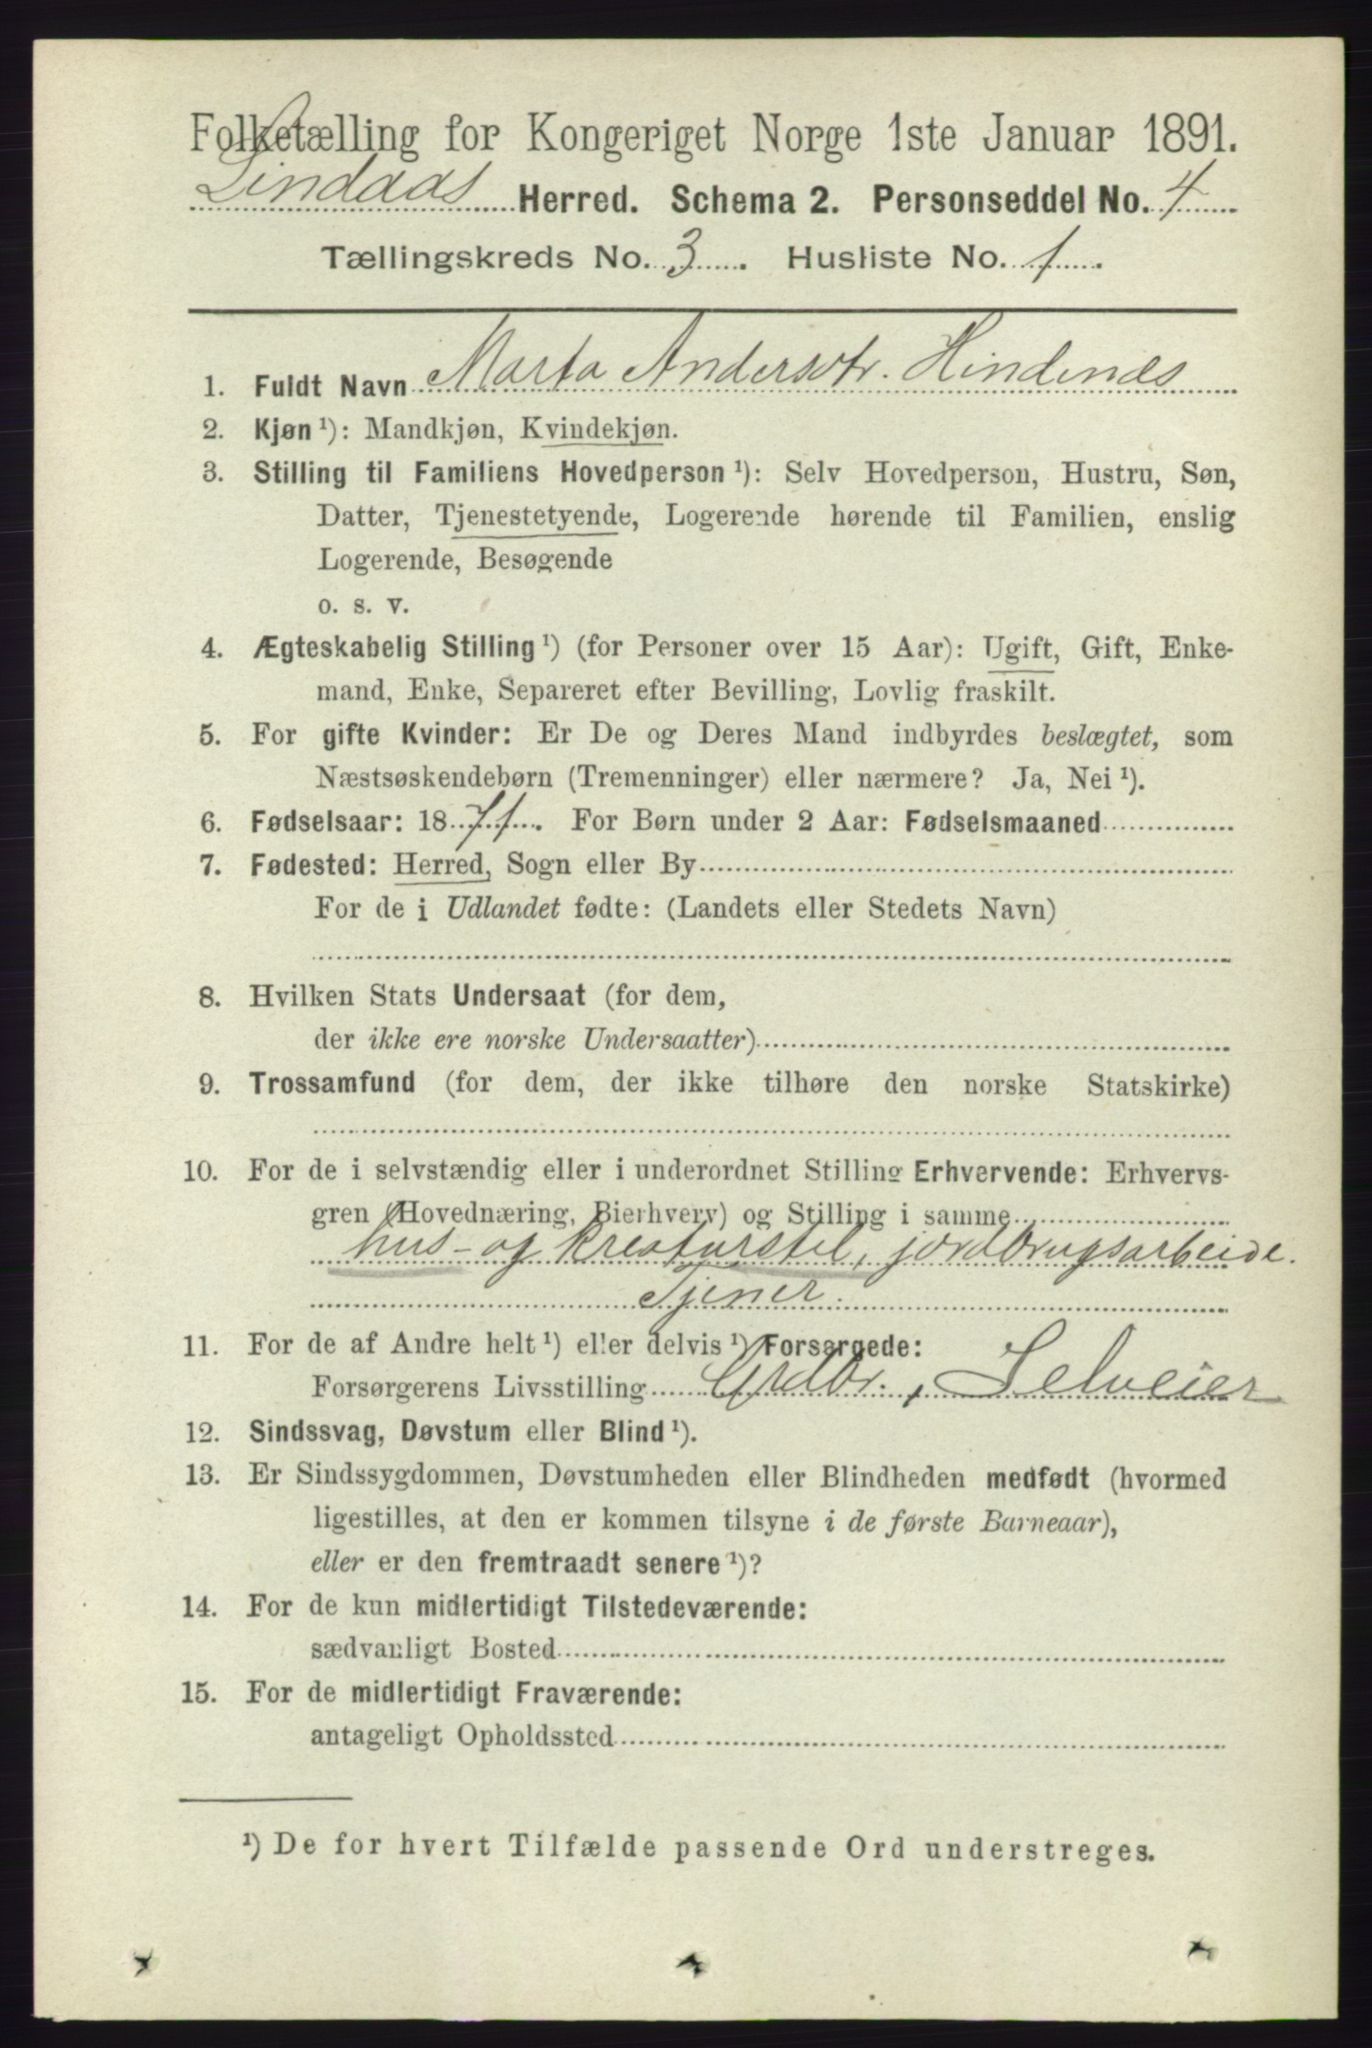 Folketælling for Kongeriget Norge 1ste Januar 1891.
Lindaas Herred. Schema 2. Personseddel No. 4
Tællingskreds No. 3. Husliste No. 1.
1. Fuldt Navn Marta Andersdtr. Hindenes
2. Kjøn ¹): Mandkjøn, Kvindekjøn.
3. Stilling til Familiens Hovedperson ¹): Selv Hovedperson, Hustru, Søn,
Datter, Tjenestetyende, Logerende hørende til Familien, enslig
Logerende, Besøgende
o. s. v.
4. Ægteskabelig Stilling ¹) (for Personer over 15 Aar): Ugift, Gift, Enke-
mand, Enke, Separeret efter Bevilling, Lovlig fraskilt.
5. For gifte Kvinder: Er De og Deres Mand indbyrdes beslægtet, som
Næstsøskendebørn (Tremenninger) eller nærmere? Ja, Nei ¹).
6. Fødselsaar: 1871. For Børn under 2 Aar: Fødselsmaaned
7. Fødested: Herred, Sogn eller By
For de i Udlandet fødte: (Landets eller Stedets Navn)
8. Hvilken Stats Undersaat (for dem,
der ikke ere norske Undersaatter)
9. Trossamfund (for dem, der ikke tilhøre den norske Statskirke)
10. For de i selvstændig eller i underordnet Stilling Erhvervende: Erhvervs-
gren (Hovednæring, Bierhverv) og Stilling i samme
hus- og kreaturstel, jordbrugsarbeide.
Tjener.
11. For de af Andre helt ¹) eller delvis ¹) Forsørgede:
Forsørgerens Livsstilling Grdbr., Selveier
12. Sindssvag, Døvstum eller Blind ¹).
13. Er Sindssygdommen, Døvstumheden eller Blindheden medfødt (hvormed
ligestilles, at den er kommen tilsyne i de første Barneaar),
eller er den fremtraadt senere ¹)?
14. For de kun midlertidigt Tilstedeværende:
sædvanligt Bosted
15. For de midlertidigt Fraværende:
antageligt Opholdssted
¹) De for hvert Tilfælde passende Ord understreges.